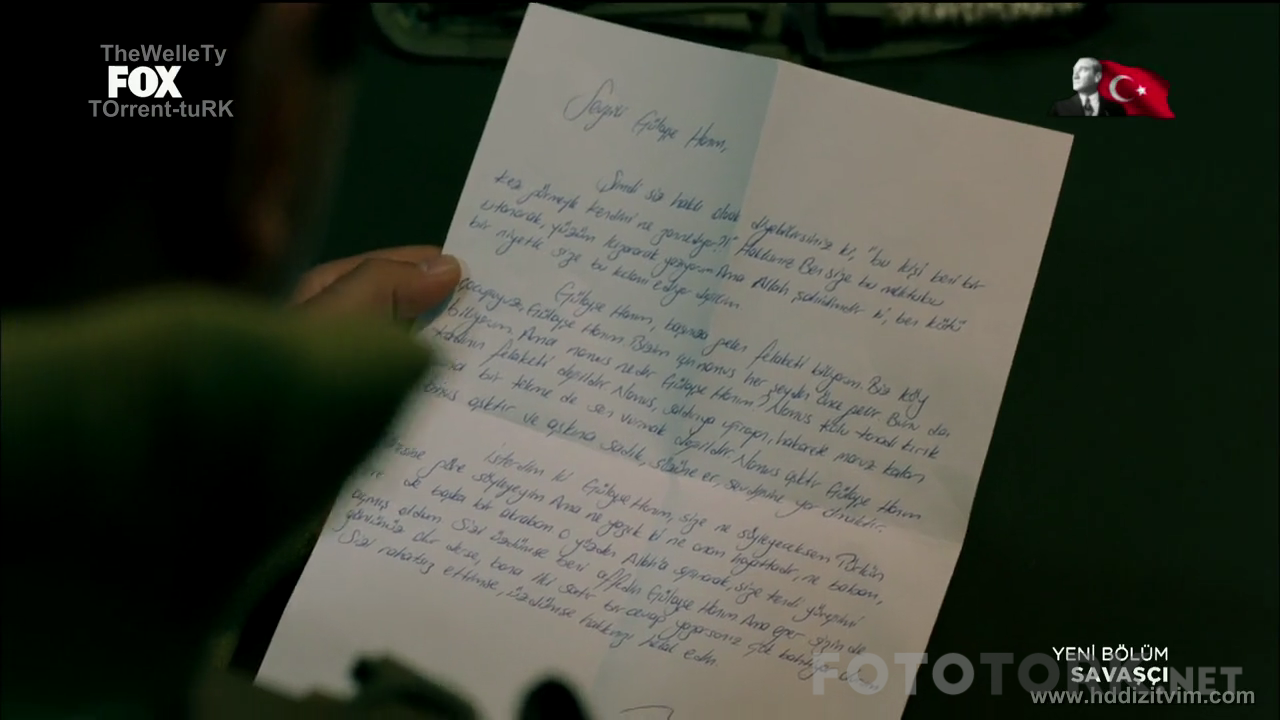 TheWelleTy
FOX
TOrrent-tuRK
Sevgili Gülayşe Hanım,
Şimdi siz haklı olarak diyebilirsiniz ki, "bu kişi beni bir
kez görmeyle kendini ne zannediyor?!" Haklısınız Ben size bu mektubu
utanarak, yüzüm kızararak yazıyorum Ama Allah şahidimdir ki, ben kötü
bir niyetle size bu kelamı ediyor değilim
Gülayşe Hanım, başınıza gelen felaketi biliyorum. Biz köy
çocuğuyuz Gülayşe Hanım. Bizim için namus her şeyden önce gelir Bunu da
biliyorum. Ama namus nedir Gülayşe Hanım? Namus kolu kanadı kırık
felaketi değildir Namus, saldırıya uğrayan, hakarete maruz kalan
bir tekme de sen vurmak değildir Namus aşktır Gülayşe Hanım
Namus aşktır ve aşkına sadık, sözüne er, sevdiğine yar olmaktır.
İsterdim ki Gülayşe Hanım, size ne söyleyeceksem
göre söyleyeyim Ama ne yazık ki ne anam hayattadır, ne babam,
ne de başka bir akrabam O yüzden Allah'a sığınarak, size kendi yüreğimi
açmış oldum Sizi üzdümse beni affedin Gülayşe Hanım Ama eğer sizin de
gönlünüz olur derse, bana iki satır bir cevap yazarsanız çok bahtiyar olurum
Sizi rahatsız ettimse, üzdümse hakkınızı helal edin.
YENİ BÖLÜM
SAVAŞÇI
www.hddizitvim.com